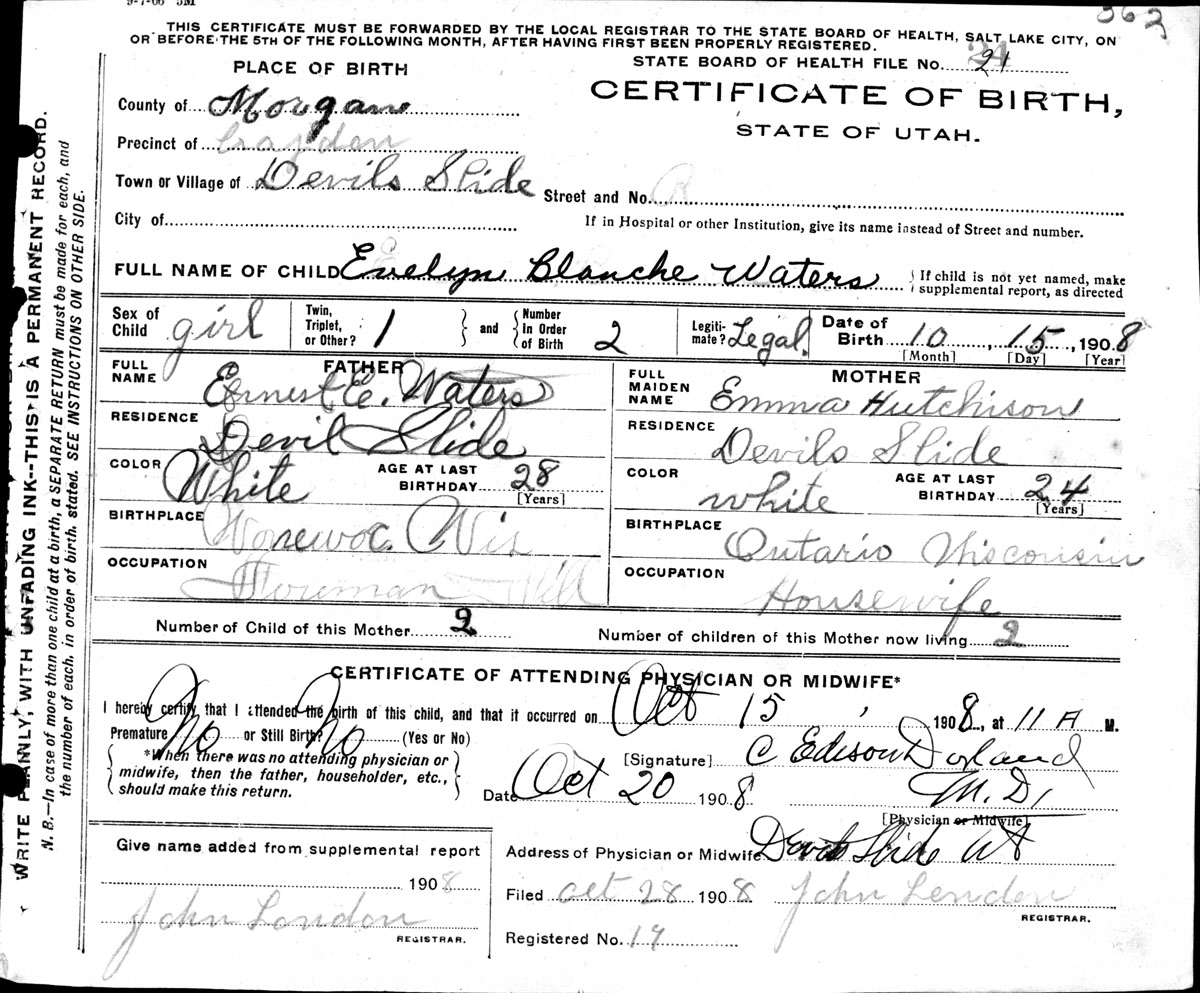 9-7-06 5M
362
THIS CERTIFICATE MUST BE FORWARDED BY THE LOCAL REGISTRAR TO THE STATE BOARD OF HEALTH, SALT LAKE CITY, ON
OR BEFORE THE 5TH OF THE FOLLOWING MONTH, AFTER HAVING FIRST BEEN PROPERLY REGISTERED.
STATE BOARD OF HEALTH FILE No. 21
PLACE OF BIRTH
CERTIFICATE OF BIRTH,
STATE OF UTAH.
County of Morgan
Precinct of Croyden
Town or Village of Devils Slide
Street and No.
City of
If in Hospital or other Institution, give its name instead of Street and number.
FULL NAME OF CHILD Evelyn Blanche Waters
{ If child is not yet named, make
supplemental report, as directed
Sex of Child girl
Twin, Triplet, or Other? 1
and
Number In Order of Birth 2
Legiti-mate? Legal.
Date of Birth 10, 15, 1908
[Month] [Day] [Year]
FATHER
FULL NAME Ernest E. Waters
RESIDENCE Devil Slide
COLOR White
AGE AT LAST BIRTHDAY 28
[Years]
BIRTHPLACE Wonewoc. Wis
OCCUPATION Foreman Mill
MOTHER
FULL MAIDEN NAME Emma Hutchison
RESIDENCE Devils Slide
COLOR white
AGE AT LAST BIRTHDAY 24
[Years]
BIRTHPLACE Ontario Wisconsin
OCCUPATION Housewife
Number of Child of this Mother 2
Number of children of this Mother now living 2
CERTIFICATE OF ATTENDING PHYSICIAN OR MIDWIFE*
I hereby certify that I attended the birth of this child, and that it occurred on Oct 15, 1908, at 11 A M.
Premature No or Still Birth? No (Yes or No)
*When there was no attending physician or
midwife, then the father, householder, etc.,
should make this return.
[Signature] C Edison Dorland
M. D.
Date Oct 20 1908
[Physician or Midwife]
Address of Physician or Midwife Devils Slide Ut
Give name added from supplemental report
1908
John London
REGISTRAR.
Filed Oct 28 1908 John London
REGISTRAR.
Registered No. 19
WRITE PLAINLY, WITH UNFADING INK--THIS IS A PERMANENT RECORD.
N. B.—In case of more than one child at a birth, a SEPARATE RETURN must be made for each, and
the number of each, in order of birth, stated. SEE INSTRUCTIONS ON OTHER SIDE.